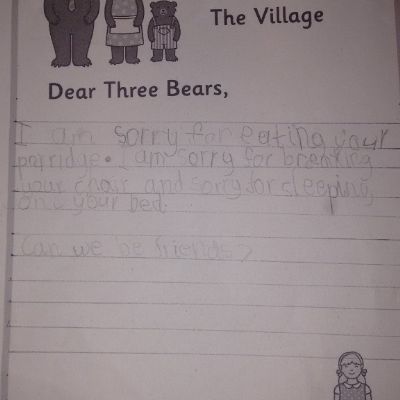 The Village
Dear Three Bears,
I am sorry for eating your
porridge. I am sorry for breaking
your chair and sorry for sleeping
on your bed.
Can we be friends?